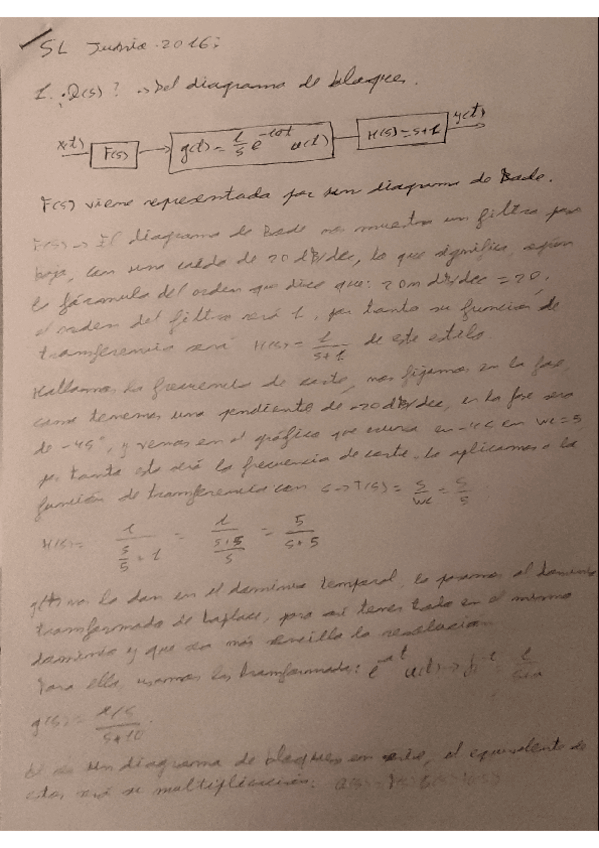 SL Junio 2016:
1. ¿Q(s)? → Del diagrama de bloques.
x(t) F(s) g(t) = 1/5 e^-10t u(t) H(s) = s+1 y(t)
F(s) viene representada por un diagrama de Bode.
F(s) → El diagrama de Bode nos muestra un filtro paso
bajo, con una caída de 20 dB/dec, lo que significa, según
la fórmula del orden que dice que: 20n dB/dec = 20,
el orden del filtro será 1, por tanto su función de
transferencia será H(s) = 1/(s+1) de este estilo.
Hallamos la frecuencia de corte, nos fijamos en la fase,
como tenemos una pendiente de -20 dB/dec, en la fase será
de -45°, y vemos en el gráfico que en -45 en wc=5
por tanto esta será la frecuencia de corte. La aplicamos a la
función de transferencia con s/wc = s/5
H(s) = 1/(s/5 + 1) = 1/((s+5)/5) = 5/(s+5)
g(t) nos la dan en el dominio temporal. La pasamos al dominio
transformado de Laplace, para así tener todo en el mismo
dominio y que sea más sencilla la resolución.
Para ello, usamos las transformadas: e^-at u(t) → 1/(s+a)
g(s) = 1/5/(s+10).
un diagrama de bloques en serie, el equivalente de
estos será su multiplicación: